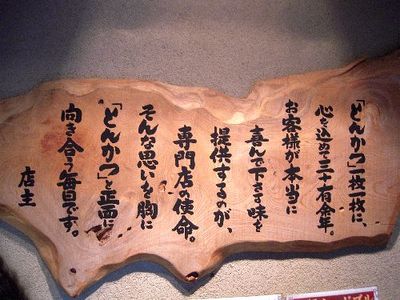 「とんかつ」一枚一枚に、
心を込めて三十有余年。
お客様が本当に
喜んで下さる味を
提供するのが、
専門店の使命。
そんな思いを胸に
「とんかつ」と正面から
向き合う毎日です。
店主